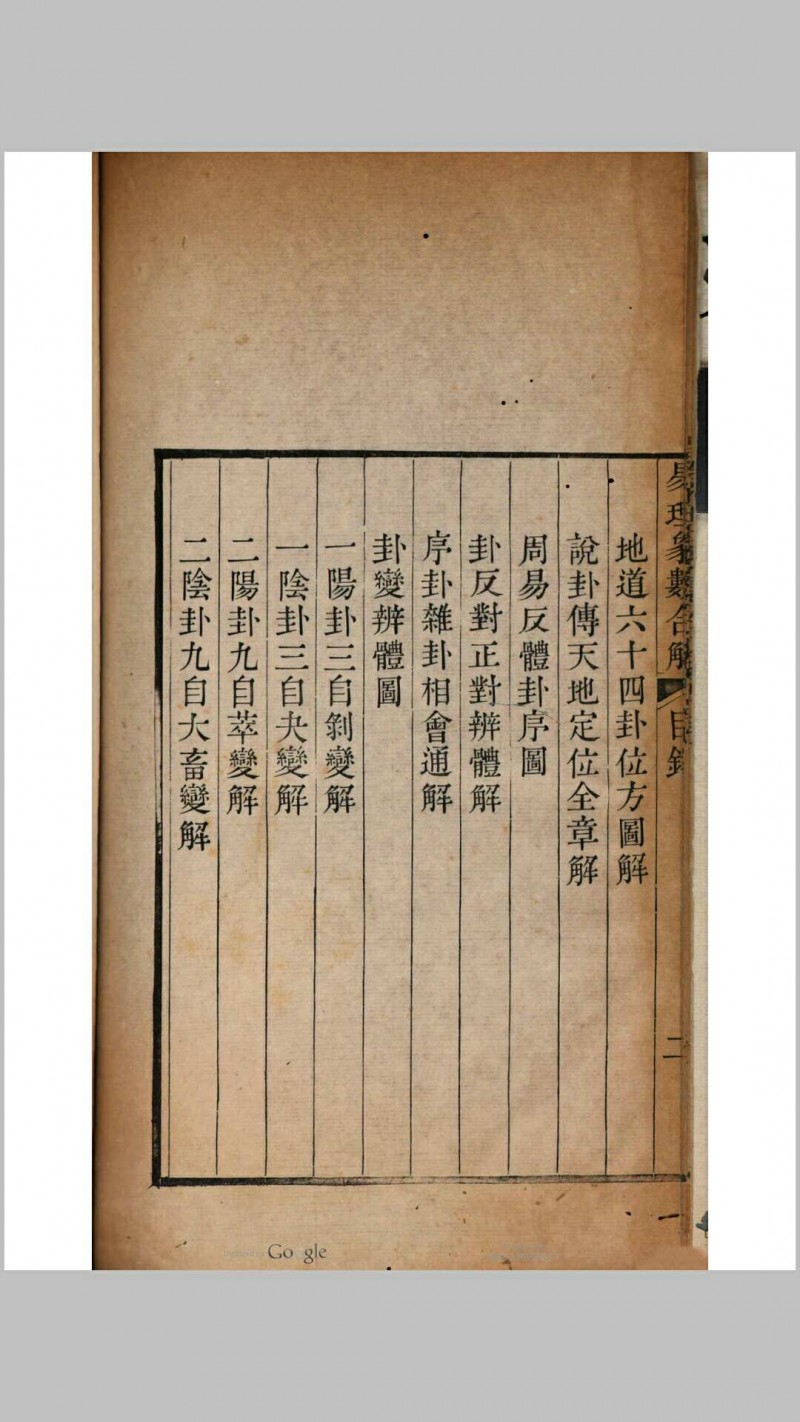 易理象數合解 目錄 二
地道六十四卦位方圖解
說卦傳天地定位全章解
周易反體卦序圖
卦反對正對辨體解
序卦雜卦相會通解
卦變辨體圖
一陽卦三自剝變解
一陰卦三自夬變解
二陽卦九自萃變解
二陰卦九自大畜變解
Google